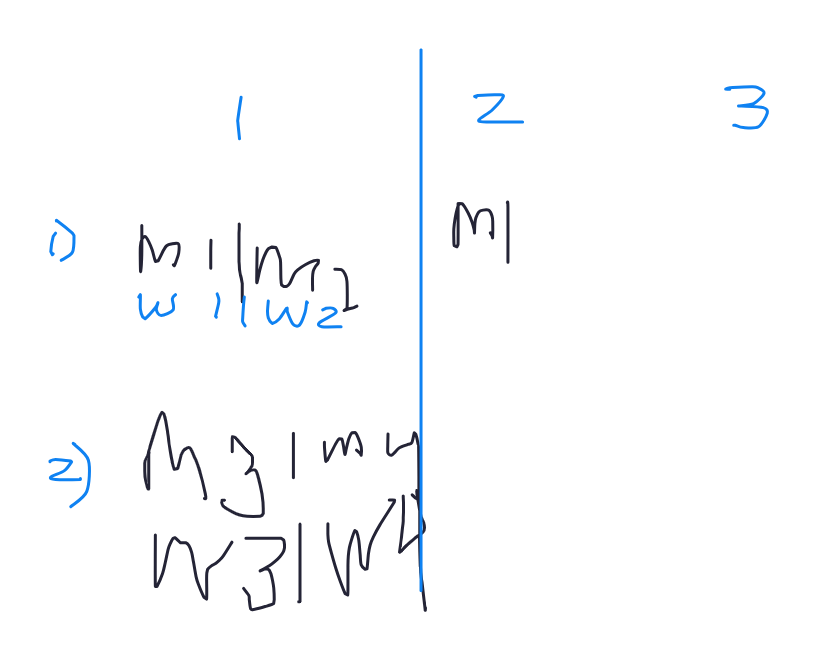 1 2 3
1) M 1 | M2 M1
W 1 | W2
2) M3 | M4
W3 | W4